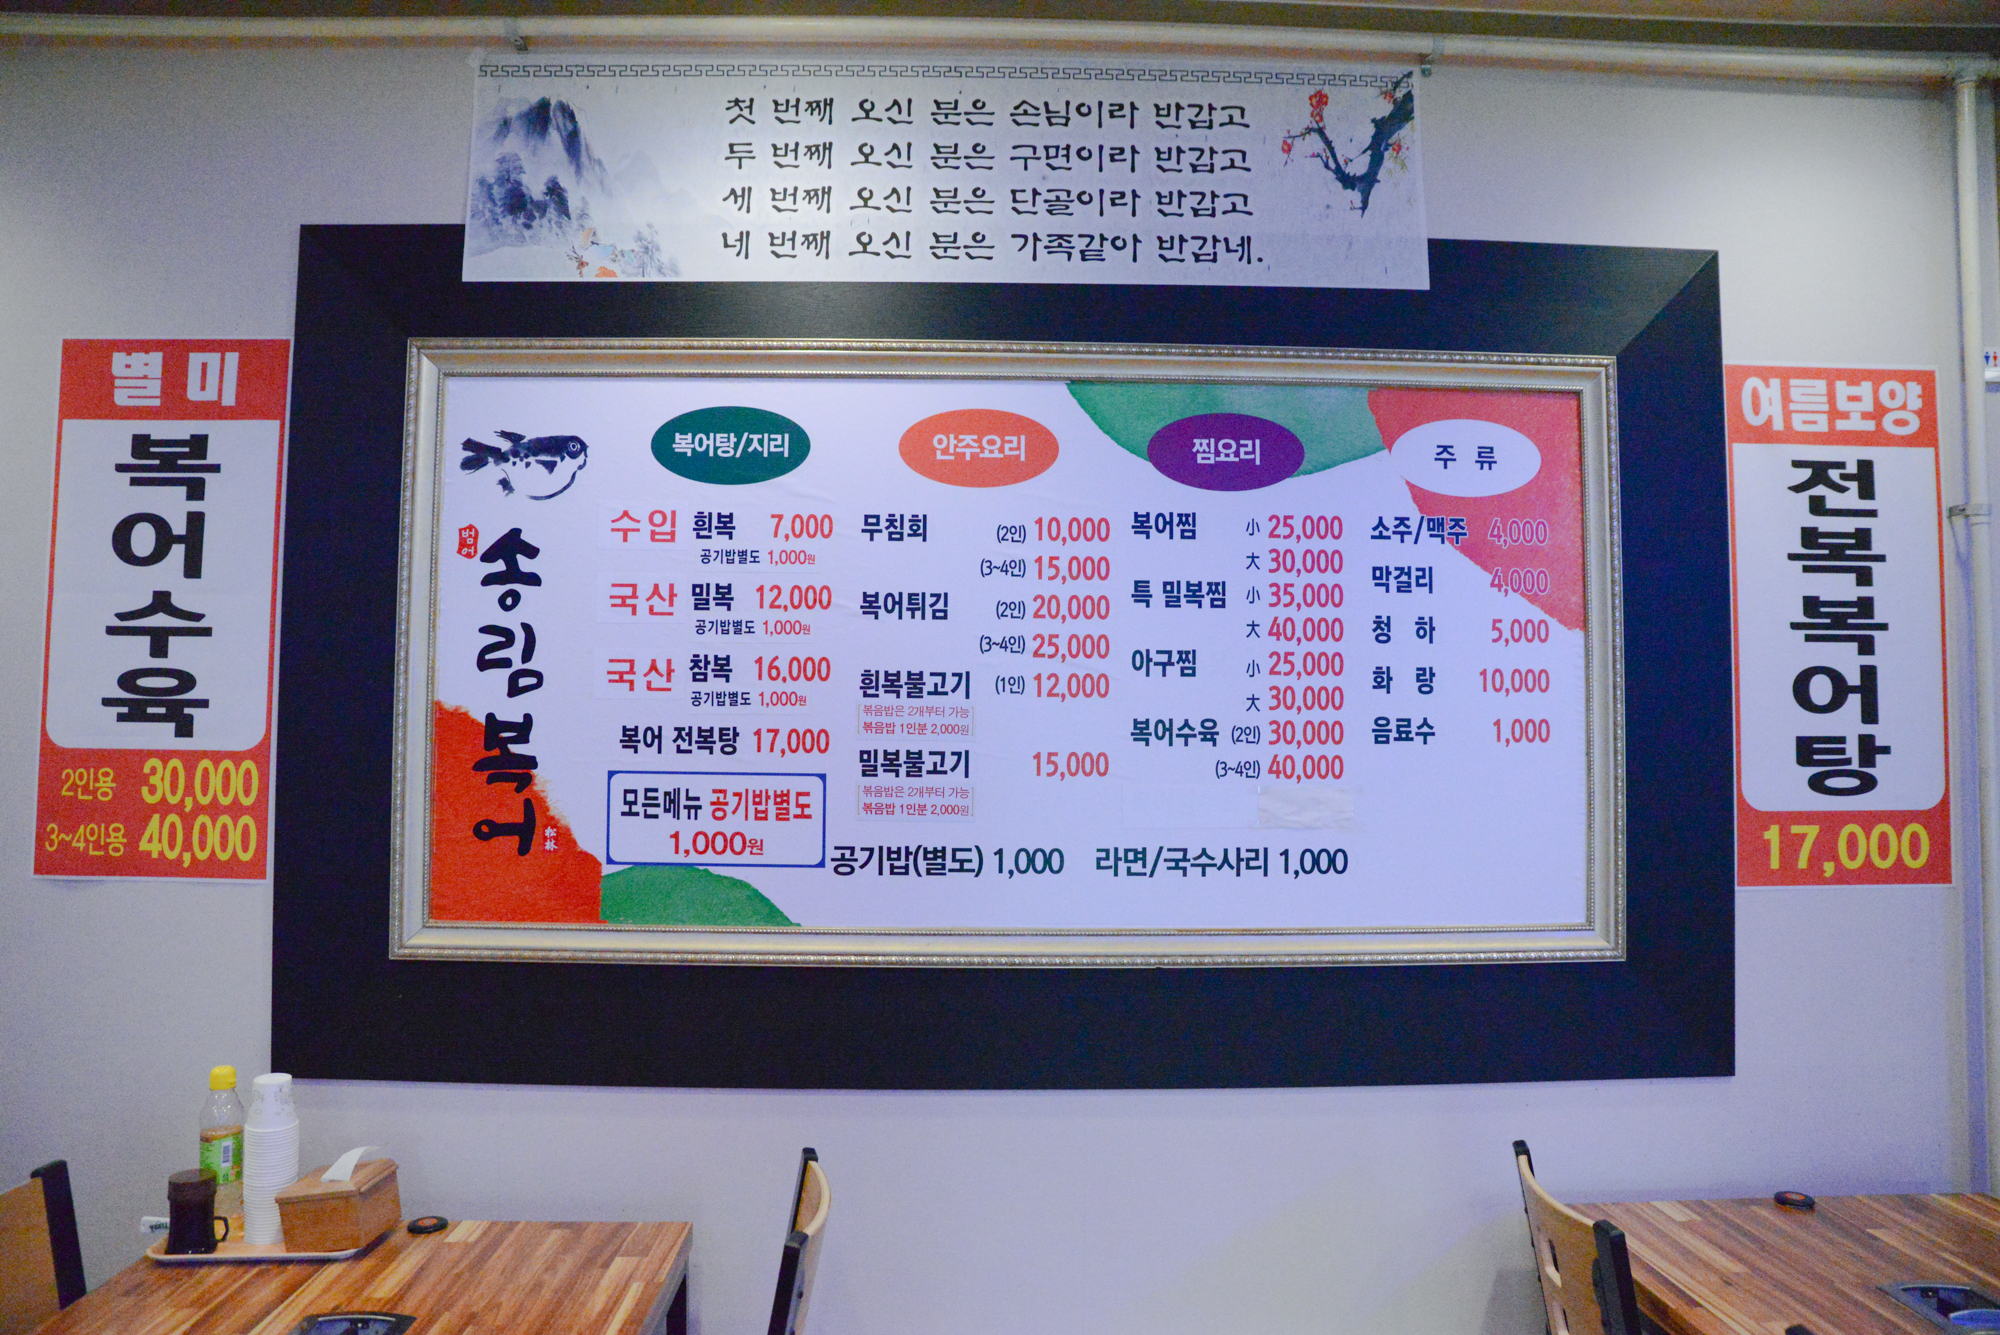 첫 번째 오신 분은 손님이라 반갑고
두 번째 오신 분은 구면이라 반갑고
세 번째 오신 분은 단골이라 반갑고
네 번째 오신 분은 가족같아 반갑네.
별미
복어수육
2인용 30,000
3~4인용 40,000
범어
송림복어
松林
복어탕/지리
수입 흰복 7,000
공기밥별도 1,000원
국산 밀복 12,000
공기밥별도 1,000원
국산 참복 16,000
공기밥별도 1,000원
복어 전복탕 17,000
모든메뉴 공기밥별도
1,000원
안주요리
무침회 (2인) 10,000
(3~4인) 15,000
복어튀김 (2인) 20,000
(3~4인) 25,000
흰복불고기 (1인) 12,000
볶음밥은 2개부터 가능
볶음밥 1인분 2,000원
밀복불고기 15,000
볶음밥은 2개부터 가능
볶음밥 1인분 2,000원
찜요리
복어찜 小 25,000
大 30,000
특 밀복찜 小 35,000
大 40,000
아구찜 小 25,000
大 30,000
복어수육 (2인) 30,000
(3~4인) 40,000
주 류
소주/맥주 4,000
막걸리 4,000
청 하 5,000
화 랑 10,000
음료수 1,000
공기밥(별도) 1,000 라면/국수사리 1,000
여름보양
전복복어탕
17,000